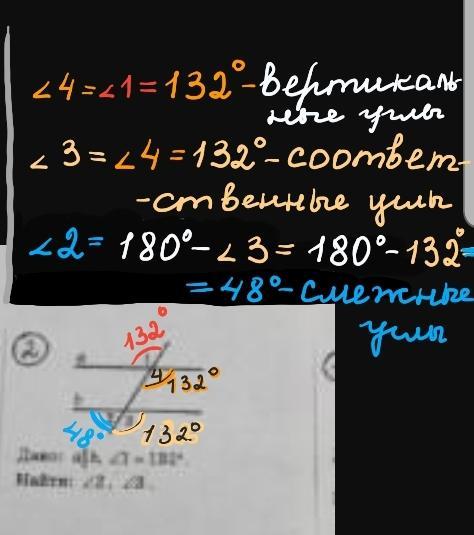 ∠4=∠1=132°-вертикаль
ные углы
∠3=∠4=132°-соответ-
-ственные углы
∠2=180°-∠3=180°-132°=
=48°-смежные
углы
2
132°
a
4 132°
b
48° 132°
Дано: a||b, ∠1=132°.
Найти: ∠2, ∠3.